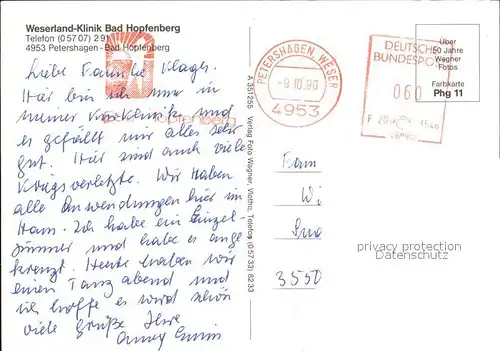 Weserland-Klinik Bad Hopfenberg
Telefon (0 57 07) 2 91
4953 Petershagen - Bad Hopfenberg
Liebe Familie Klages.
Hier bin ich nun in
meiner Kurklinik und
es gefällt mir alles sehr
gut. Hier sind auch viele
Kriegsverletzte. Wir haben
alle Anwendungen hier im
Haus. Ich habe ein Einzel
zimmer und habe es ange
kreuzt. Heute haben wir
einen Tanzabend und
ich hoffe es wird schön
viele Grüße Ihre
Hopfenberg
A 351 255 Verlag Foto Wagner, Vlotho, Telefon (0 57 33) 82 33
PETERSHAGEN, WESER
-9.10.90
4953
DEUTSCHE
BUNDESPOST
060
Über
50 Jahre
Wagner
-Fotos
Farbkarte
Phg 11
Fam
Wi
3550
privacy protection
Datenschutz